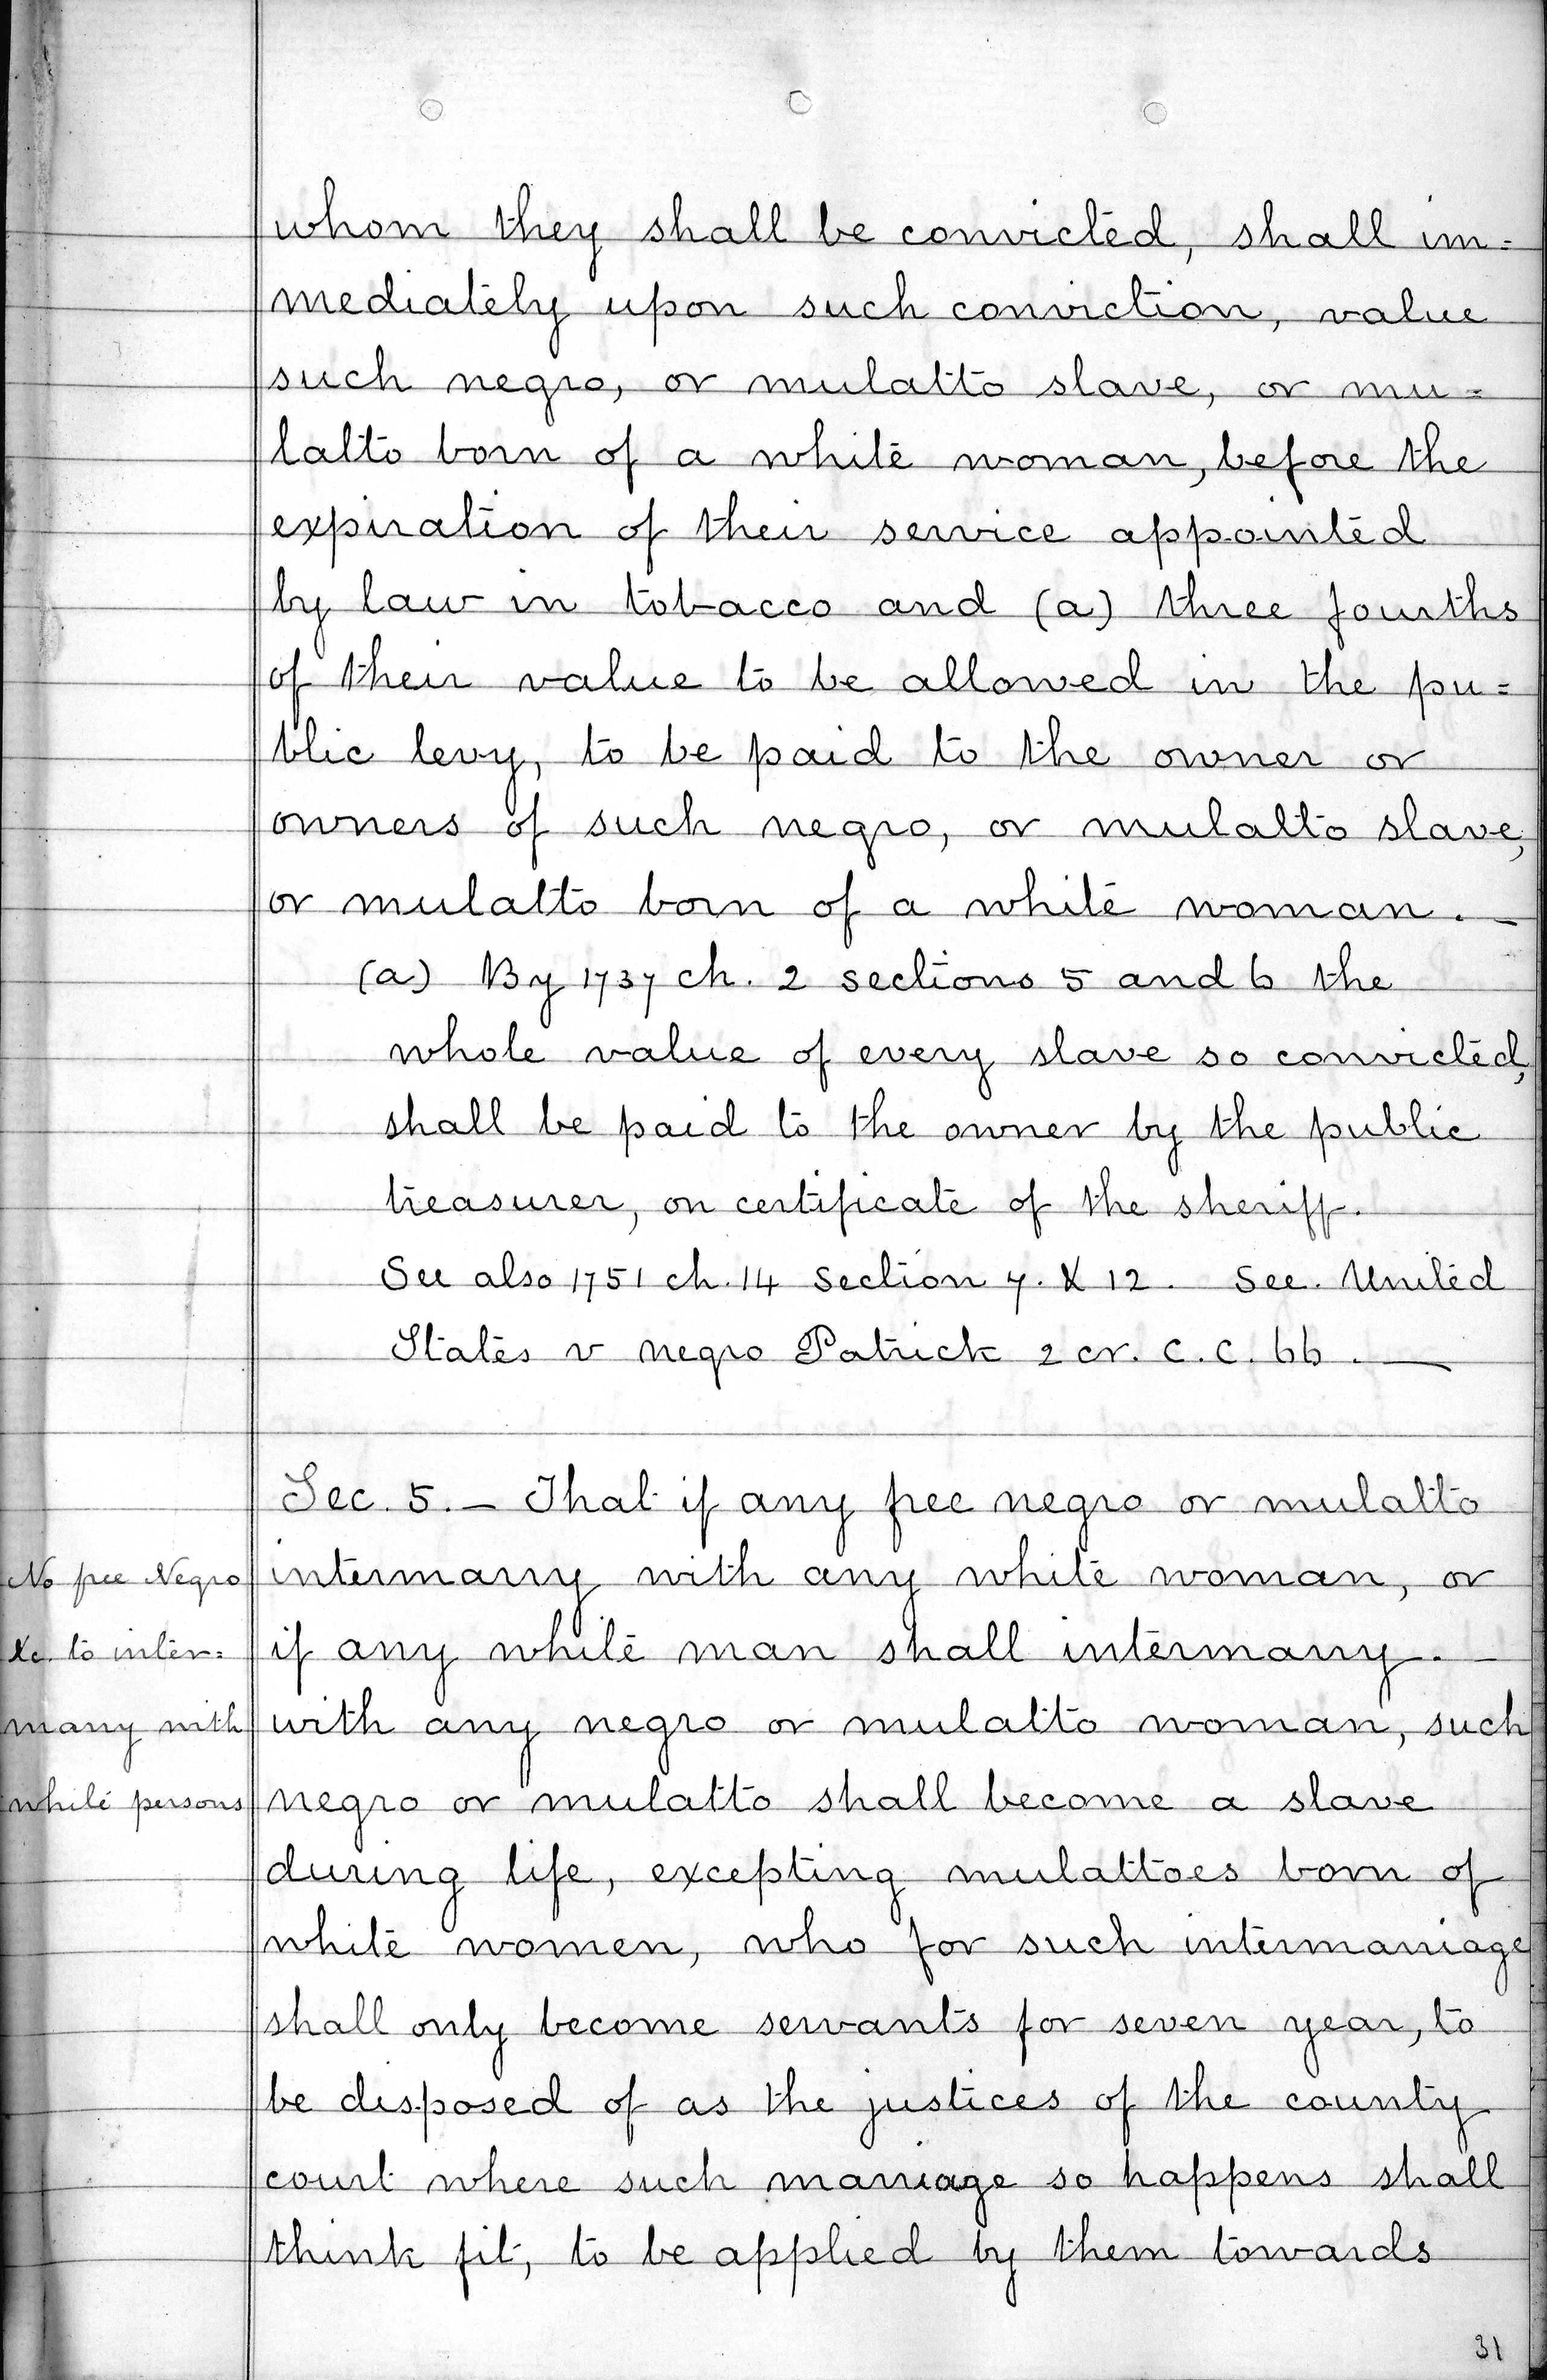 whom they shall be convicted, shall im=
mediately upon such conviction, value
such negro, or mulatto slave, or mu=
latto born of a white woman, before the
expiration of their service appointed
by law in tobacco and (a) three fourths
of their value to be allowed in the pu=
blic levy, to be paid to the owner or
owners of such negro, or mulatto slave,
or mulatto born of a white woman. —
(a) By 1737 ch. 2 sections 5 and 6 the
whole value of every slave so convicted,
shall be paid to the owner by the public
treasurer, on certificate of the sheriff.
See also 1751 ch. 14 section 7. & 12. See. United
States v negro Patrick 2 cr. C. C. 66. —
Sec. 5. — That if any free negro or mulatto
intermarry with any white woman, or
if any white man shall intermarry. —
with any negro or mulatto woman, such
negro or mulatto shall become a slave
during life, excepting mulattoes born of
white women, who for such intermarriage
shall only become servants for seven year, to
be disposed of as the justices of the county
court where such marriage so happens shall
think fit, to be applied by them towards
No free Negro
&c. to inter=
marry with
white persons
31